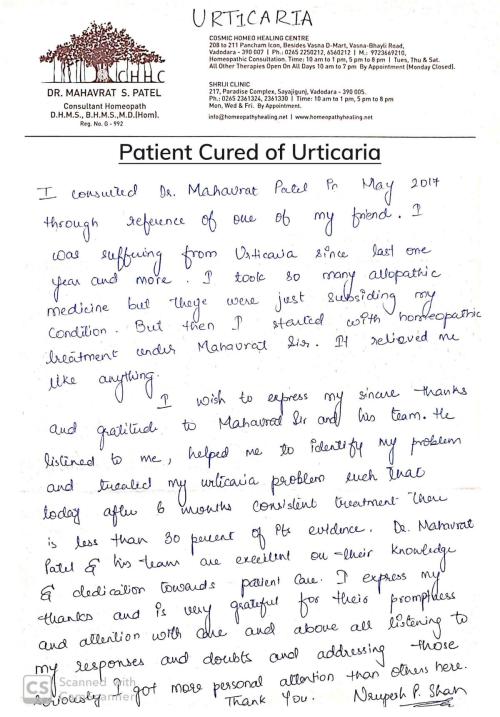 URTICARIA
CHHC
DR. MAHAVRAT S. PATEL
Consultant Homeopath
D.H.M.S., B.H.M.S., M.D.(Hom).
Reg. No. G - 992
COSMIC HOMEO HEALING CENTRE
208 to 211 Pancham Icon, Besides Vasna D-Mart, Vasna-Bhayli Road,
Vadodara - 390 007 | Ph.: 0265 2250212, 6560212 | M.: 9723669210,
Homeopathic Consultation. Time: 10 am to 1 pm, 5 pm to 8 pm | Tues, Thu & Sat.
All Other Therapies Open On All Days 10 am to 7 pm By Appointment (Monday Closed).
SHRIJI CLINIC
217, Paradise Complex, Sayajigunj, Vadodara - 390 005.
Ph.: 0265 2361324, 2361330 | Time: 10 am to 1 pm, 5 pm to 8 pm
Mon, Wed & Fri. By Appointment.
info@homeopathyhealing.net | www.homeopathyhealing.net
Patient Cured of Urticaria
I consulted Dr. Mahavrat Patel in May 2017
through reference of one of my friend. I
was suffering from Urticaria since last one
year and more. I took so many allopathic
medicine but they were just subsiding my
condition. But then I started with homeopathic
treatment under Mahavrat Sir. It relieved me
like anything.
I wish to express my sincere thanks
and gratitude to Mahavrat Sir and his team. He
listened to me, helped me to identify my problem
and treated my urticaria problem such that
today after 6 months consistent treatment there
is less than 30 percent of its evidence. Dr. Mahavrat
Patel & his team are excellent on their knowledge
& dedication towards patient care. I express my
thanks and is very grateful for their promptness
and attention with care and above all listening to
my responses and doubts and addressing those
seriously I got more personal attention than others here.
Thank You. Nrupesh P. Shah
CS Scanned with
CamScanner